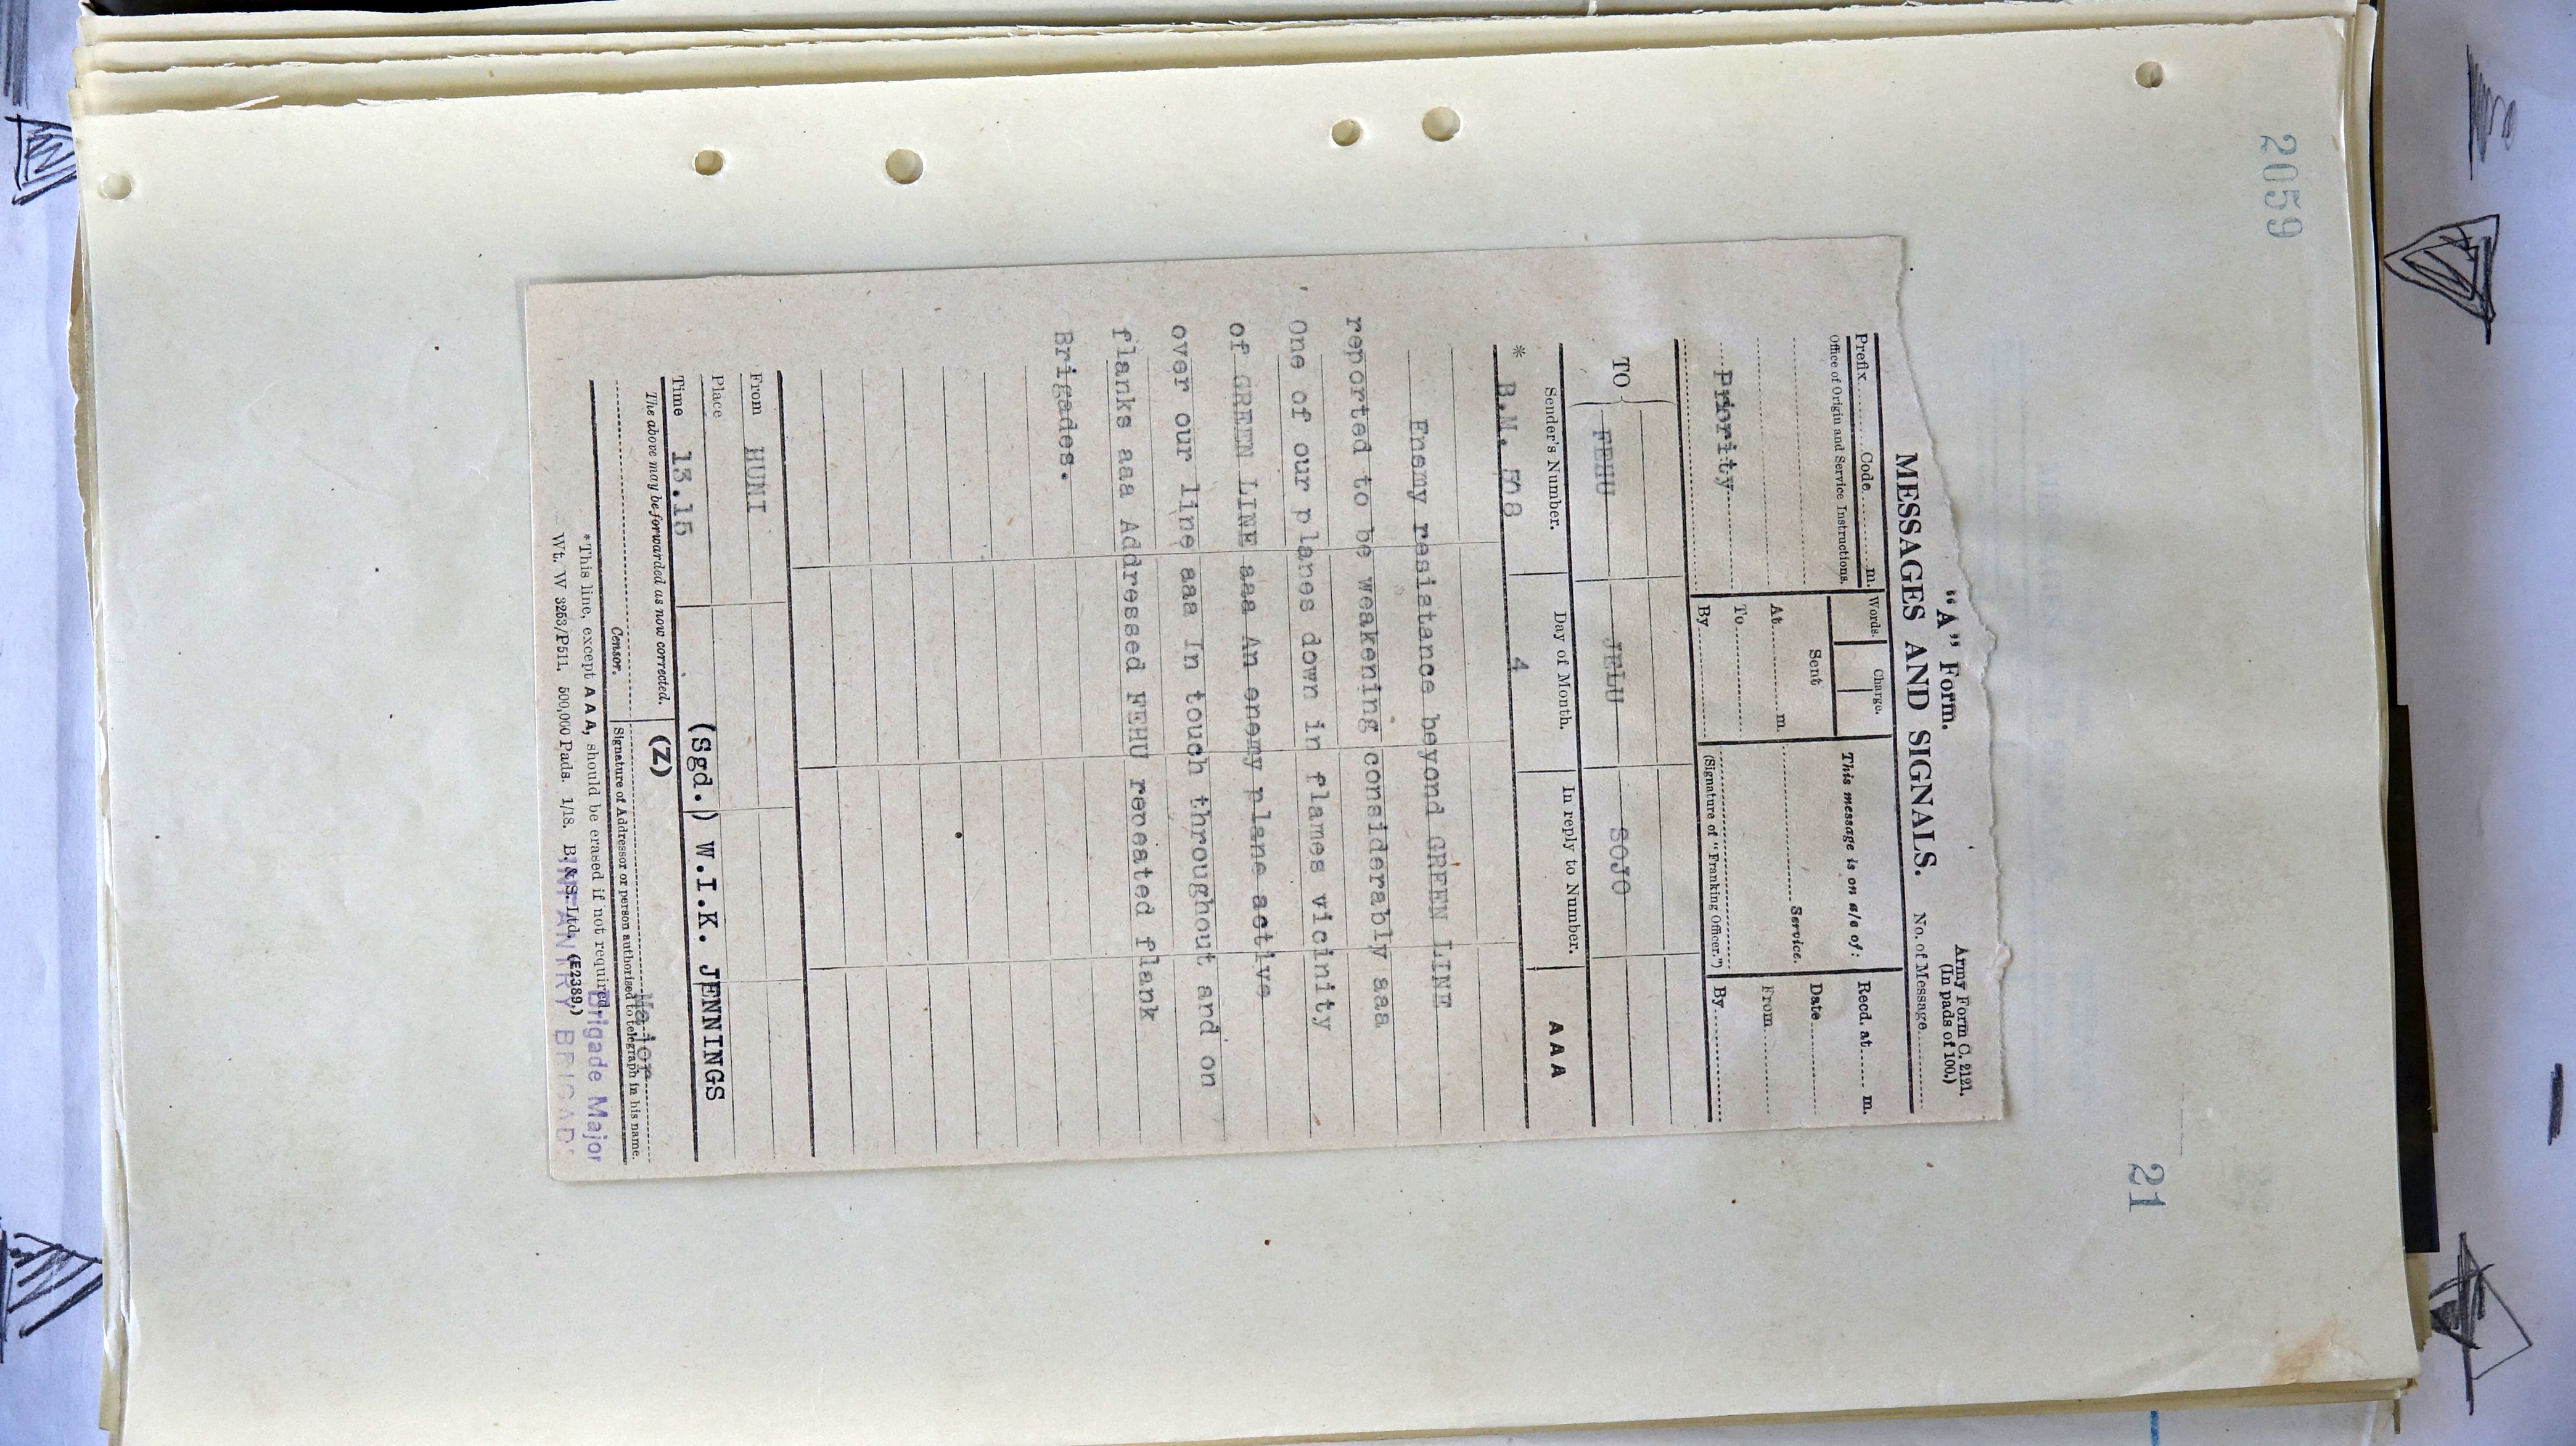 2059
21
"A" Form.
Army Form C. 2121.
(In pads of 100.)
MESSAGES AND SIGNALS.
No. of Message
Prefix Code m.
Words.
Charge.
This message is on a/c of:
Recd. at m.
Office of Origin and Service Instructions.
Sent
Service.
Date
At m.
From
Priority
To
By
(Signature of "Franking Officer.")
By
TO
FEHU JELU SOJO
Sender's Number.
Day of Month.
In reply to Number.
AAA
* B.M. 508
4
Enemy resistance beyond GREEN LINE
reported to be weakening considerably aaa
One of our planes down in flames vicinity
of GREEN LINE aaa An enemy plane active
over our line aaa In touch throughout and on
flanks aaa Addressed FEHU repeated flank
Brigades.
From HUNI
Place
Time 13.15
(Sgd.) W.I.K. JENNINGS
The above may be forwarded as now corrected.
(Z)
Major
Censor.
Signature of Addressor or person authorised to telegraph in his name.
*This line, except AAA, should be erased if not required.
Brigade Major
Wt. W 3253/P511. 500,000 Pads. 1/18. B. & S. Ltd. (E2389.)
INFANTRY BRIGADE